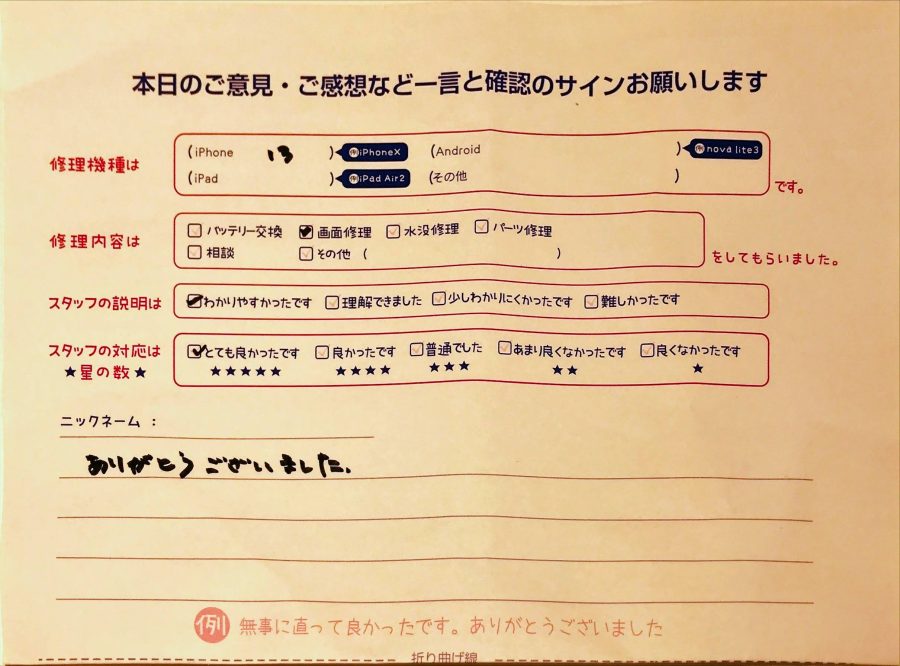 本日のご意見・ご感想など一言と確認のサインお願いします
修理機種は
(iPhone 13 ) 例iPhoneX (Android ) 例nova lite3
(iPad ) 例iPad Air2 (その他 ) です。
修理内容は
バッテリー交換 画面修理 水没修理 パーツ修理
相談 その他 ( ) をしてもらいました。
スタッフの説明は わかりやすかったです 理解できました 少しわかりにくかったです 難しかったです
スタッフの対応は とても良かったです 良かったです 普通でした あまり良くなかったです 良くなかったです
★星の数★ ★★★★★ ★★★★ ★★★ ★★ ★
ニックネーム :
ありがとうございました.
例 無事に直って良かったです。ありがとうございました
折り曲げ線